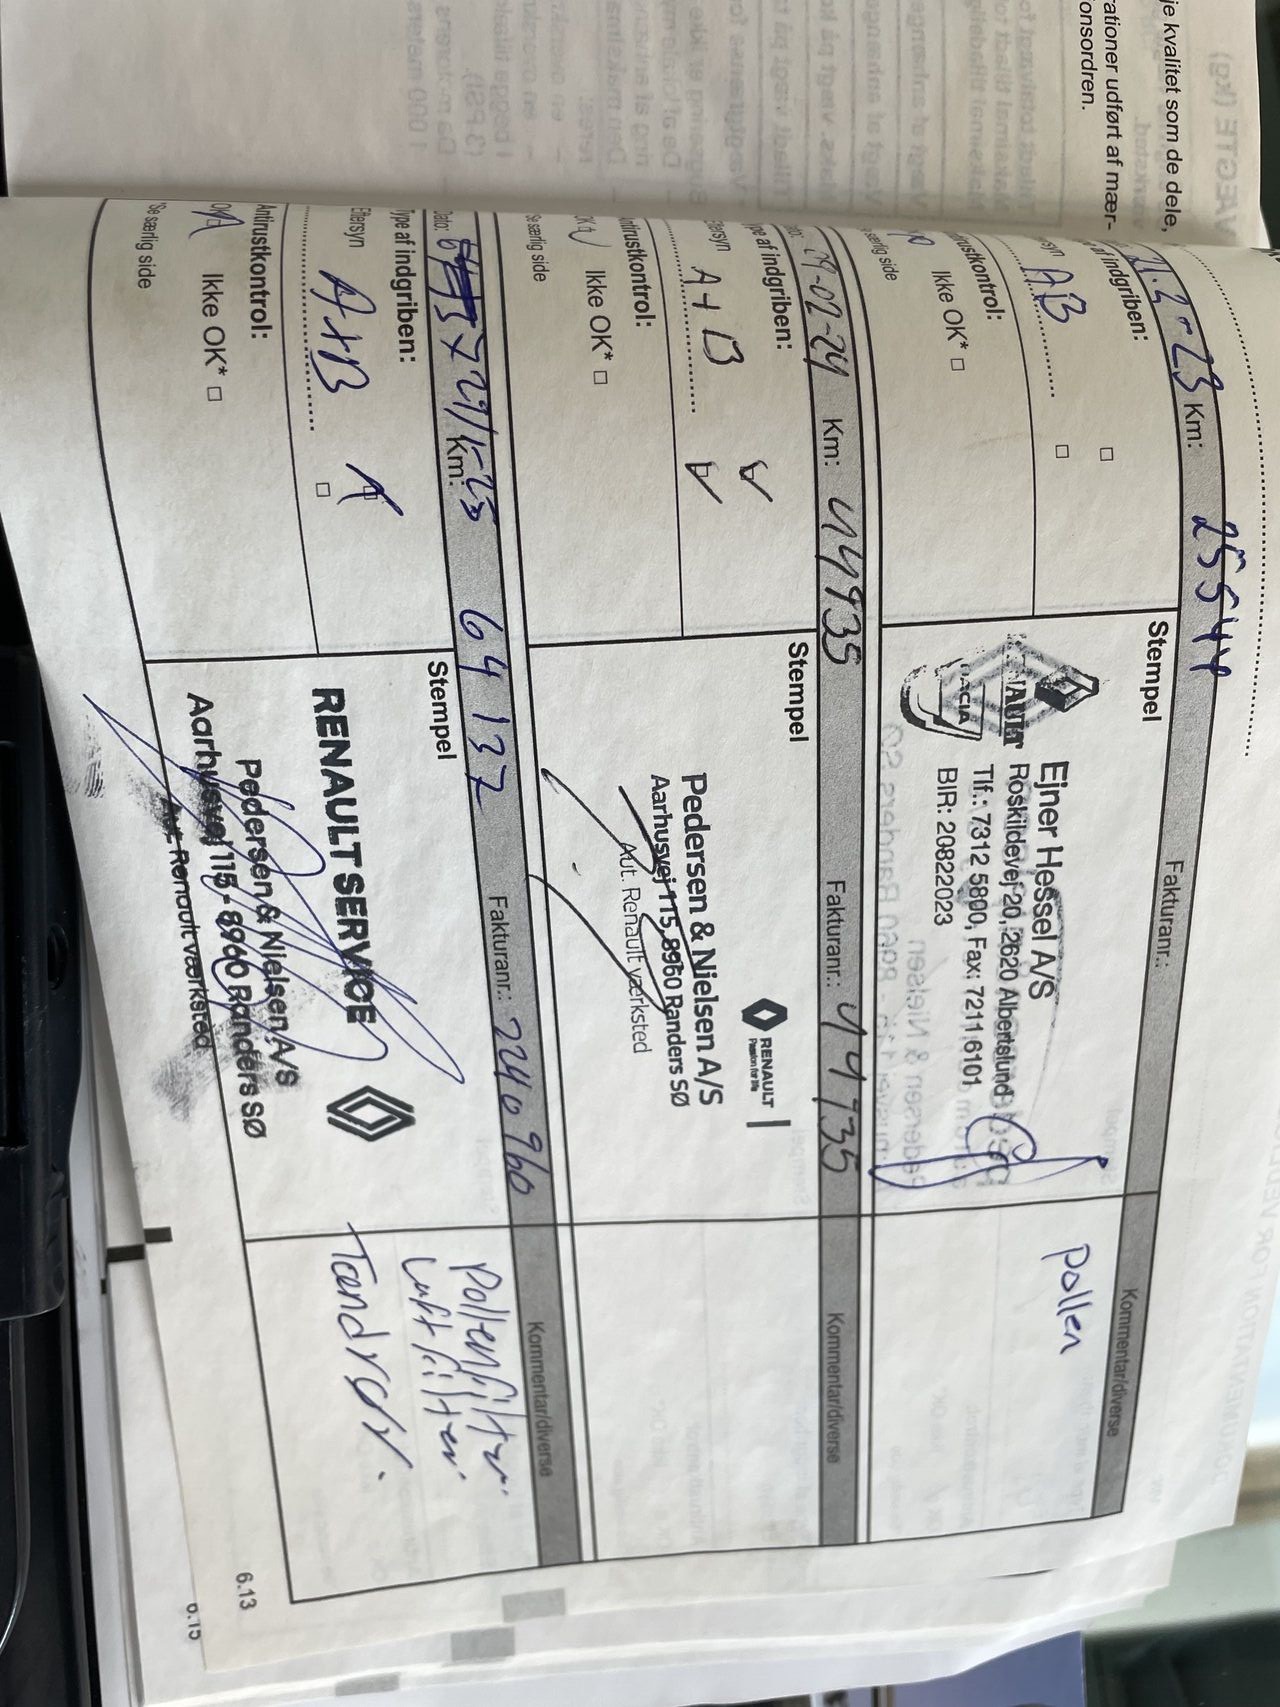 je kvalitet som de dele,
rationer udført af mær-
onsordren.
1.2-23 Km: 25544 Fakturanr.: Kommentar/diverse
indgriben:
AB
Ikke OK* □
særlig side
Stempel
RENAULT
DACIA
Ejner Hessel A/S
Roskildevej 20, 2620 Albertslund
Tlf.: 7312 5800, Fax: 7211 6101
BIR: 20822023
pollen
09-02-24 Km: 44935 Fakturanr.: 44935 Kommentar/diverse
pe af indgriben:
Eftersyn A+B
Antirustkontrol:
OK Ikke OK* □
Se særlig side
Stempel
RENAULT
Passion for life
Pedersen & Nielsen A/S
Aarhusvej 115, 8960 Randers SØ
Aut. Renault værksted
Dato: 29/1-25 Km: 64137 Fakturanr.: 240960 Kommentar/diverse
Type af indgriben:
Eftersyn A+B
Antirustkontrol:
OK Ikke OK* □
*Se særlig side
Stempel
RENAULT SERVICE
Pedersen & Nielsen A/S
Aarhusvej 115 - 8960 Randers SØ
Aut. Renault værksted
Pollenfilter.
Luftfilter.
Tændrør.
6.13
6.15